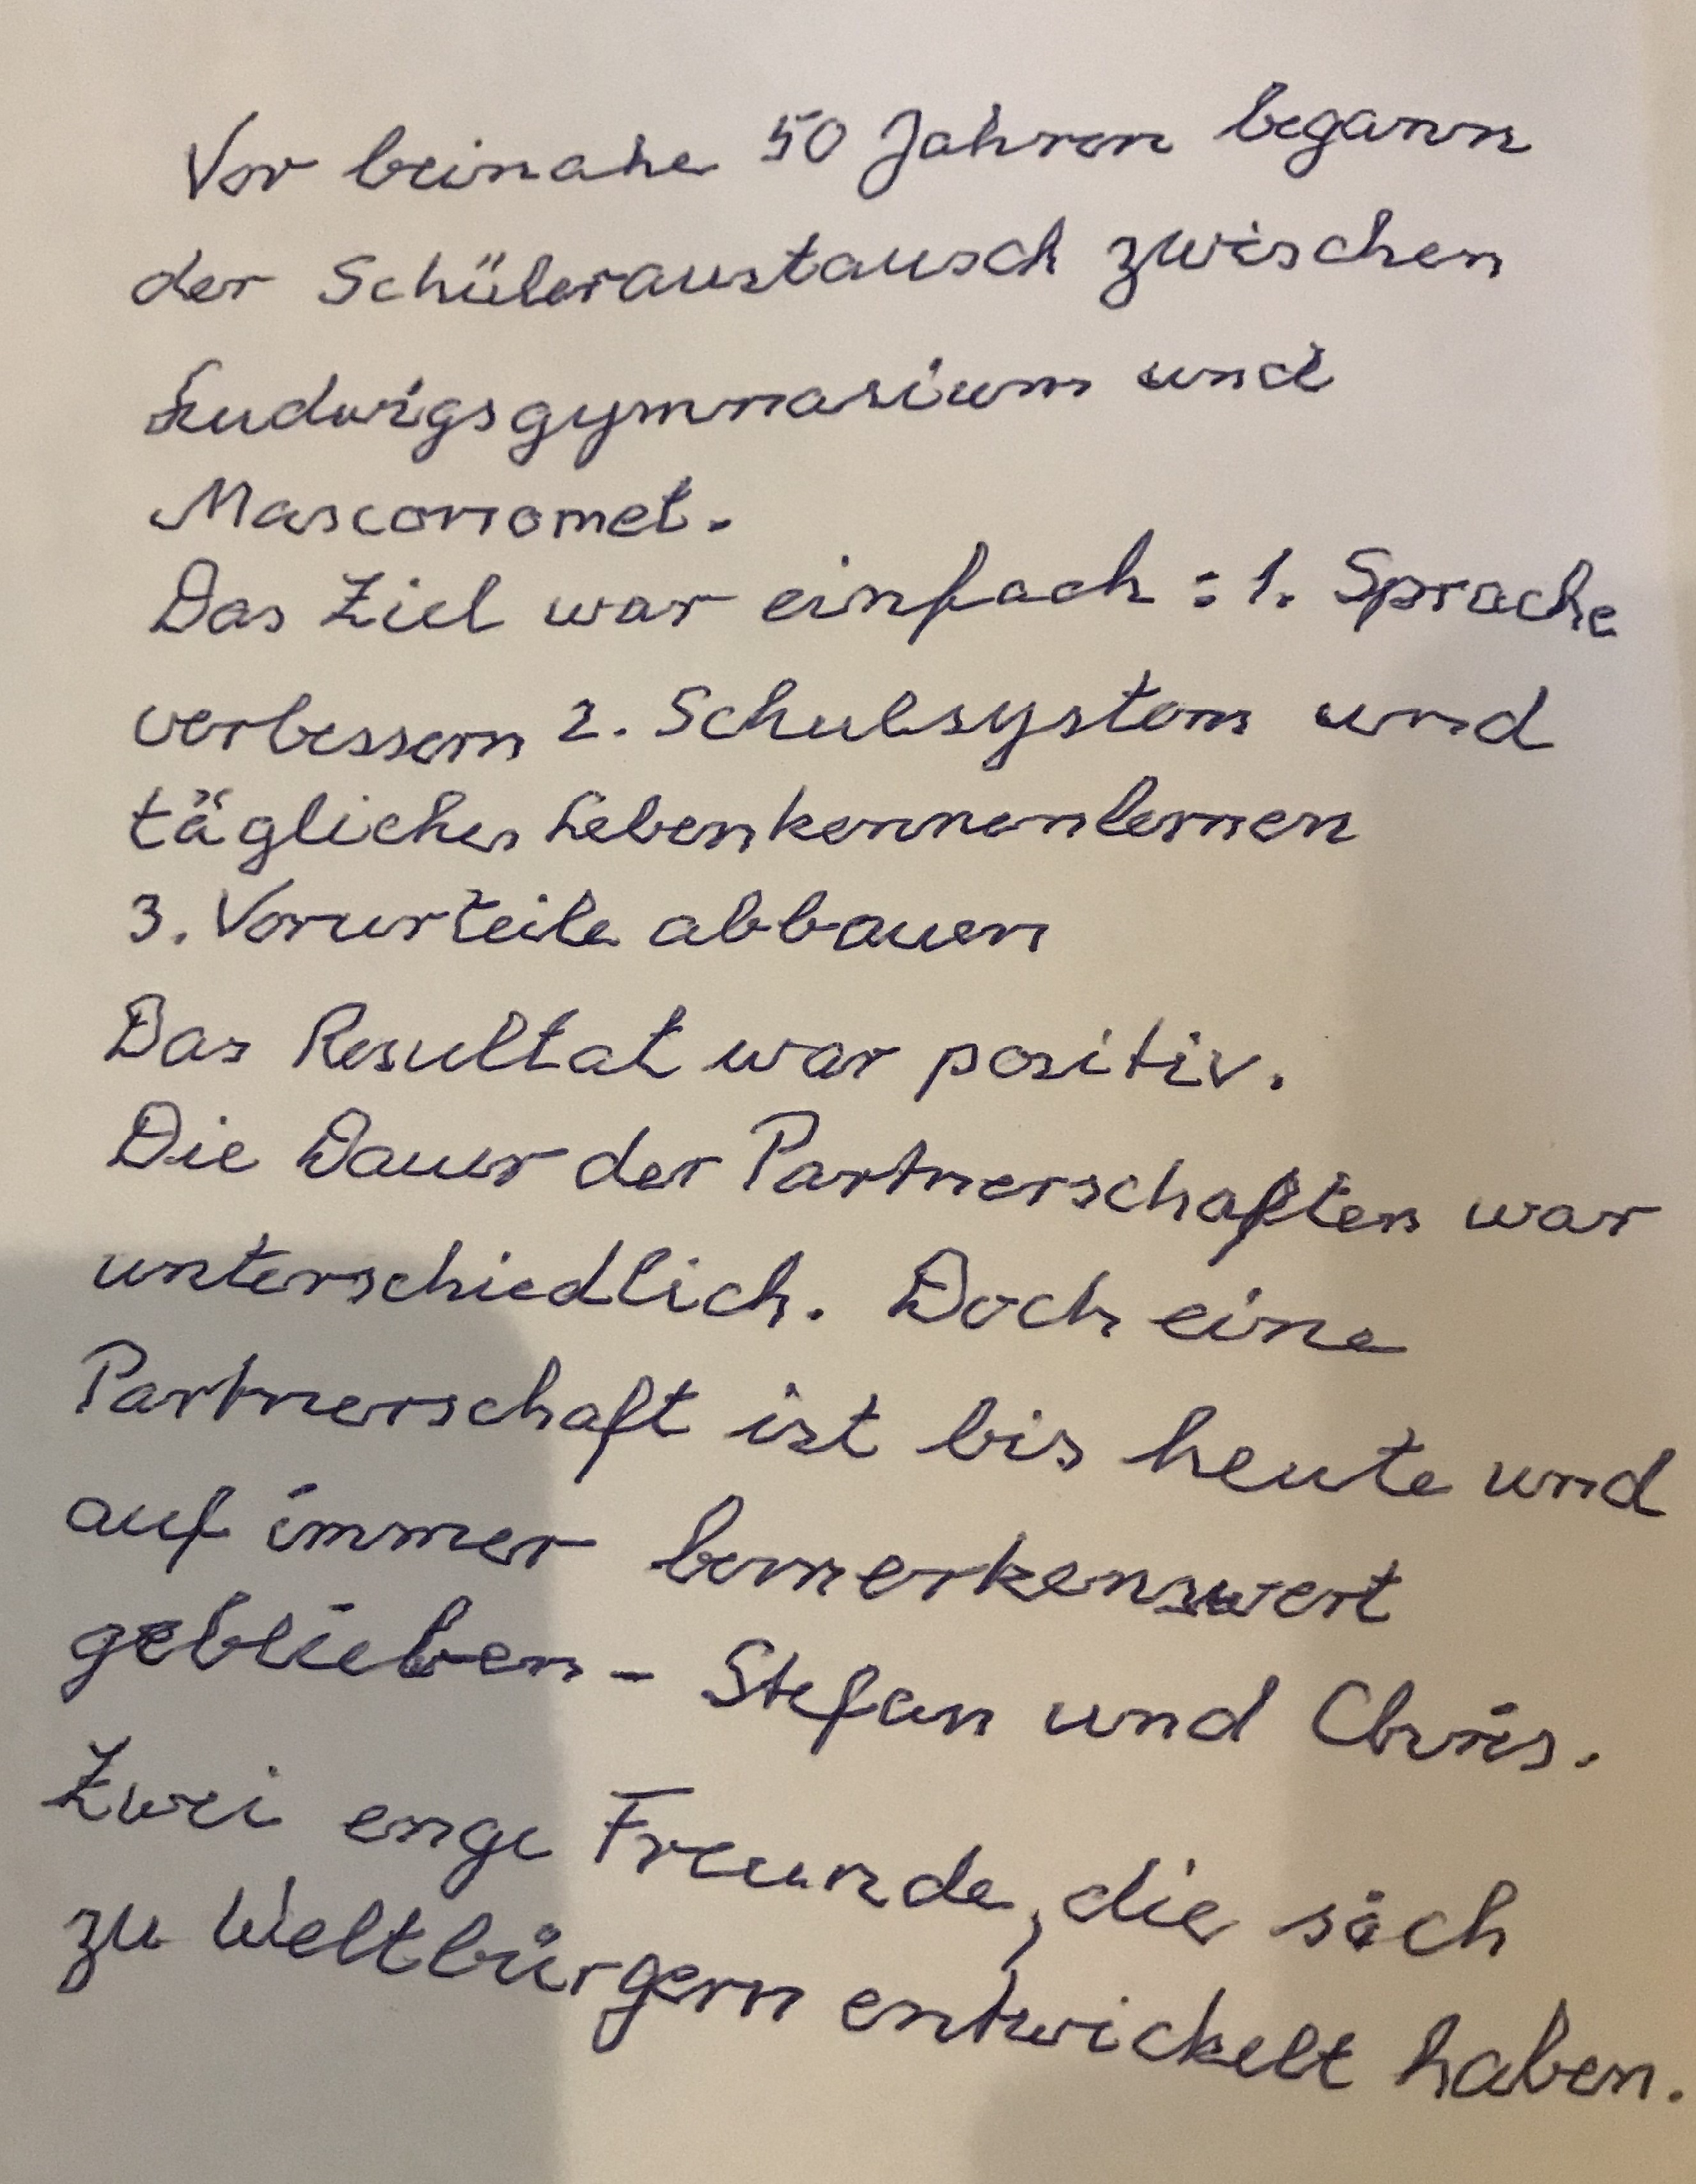 Vor beinahe 50 Jahren begann
der Schüleraustausch zwischen
Ludwigsgymnasium und
Masconomet.
Das Ziel war einfach: 1. Sprache
verbessern 2. Schulsystem und
tägliches Leben kennenlernen
3. Vorurteile abbauen
Das Resultat war positiv.
Die Dauer der Partnerschaften war
unterschiedlich. Doch eine
Partnerschaft ist bis heute und
auf immer bemerkenswert
geblieben - Stefan und Chris.
Zwei enge Freunde, die sich
zu Weltbürgern entwickelt haben.